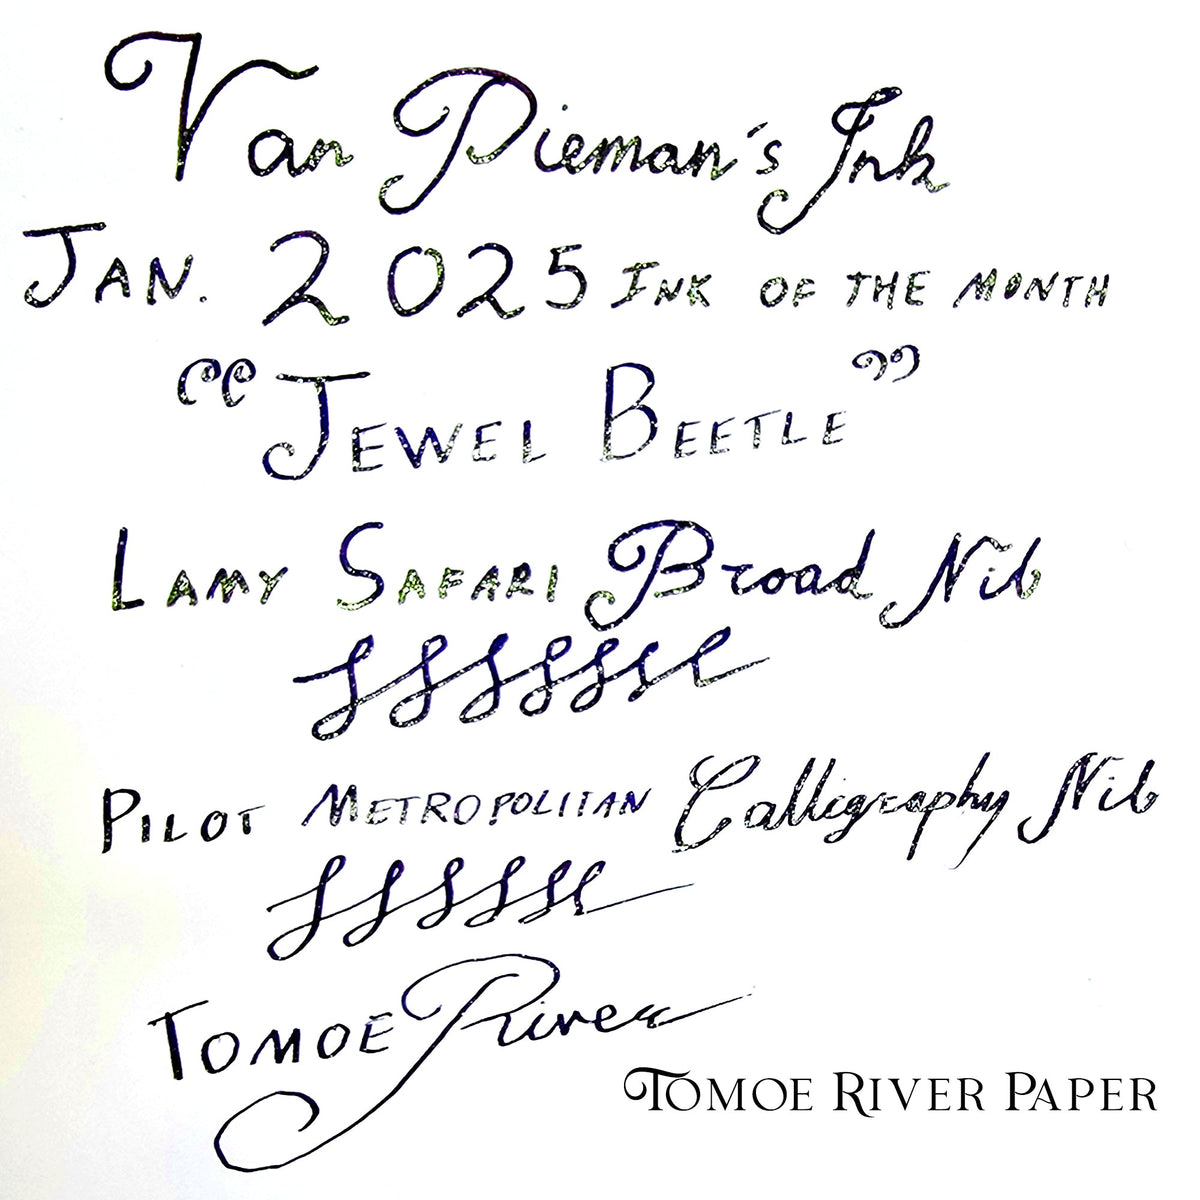 Van Dieman's Ink
JAN. 2025 INK OF THE MONTH
“JEWEL BEETLE”
LAMY SAFARI Broad Nib
PILOT METROPOLITAN Calligraphy Nib
TOMOE River
TOMOE RIVER PAPER